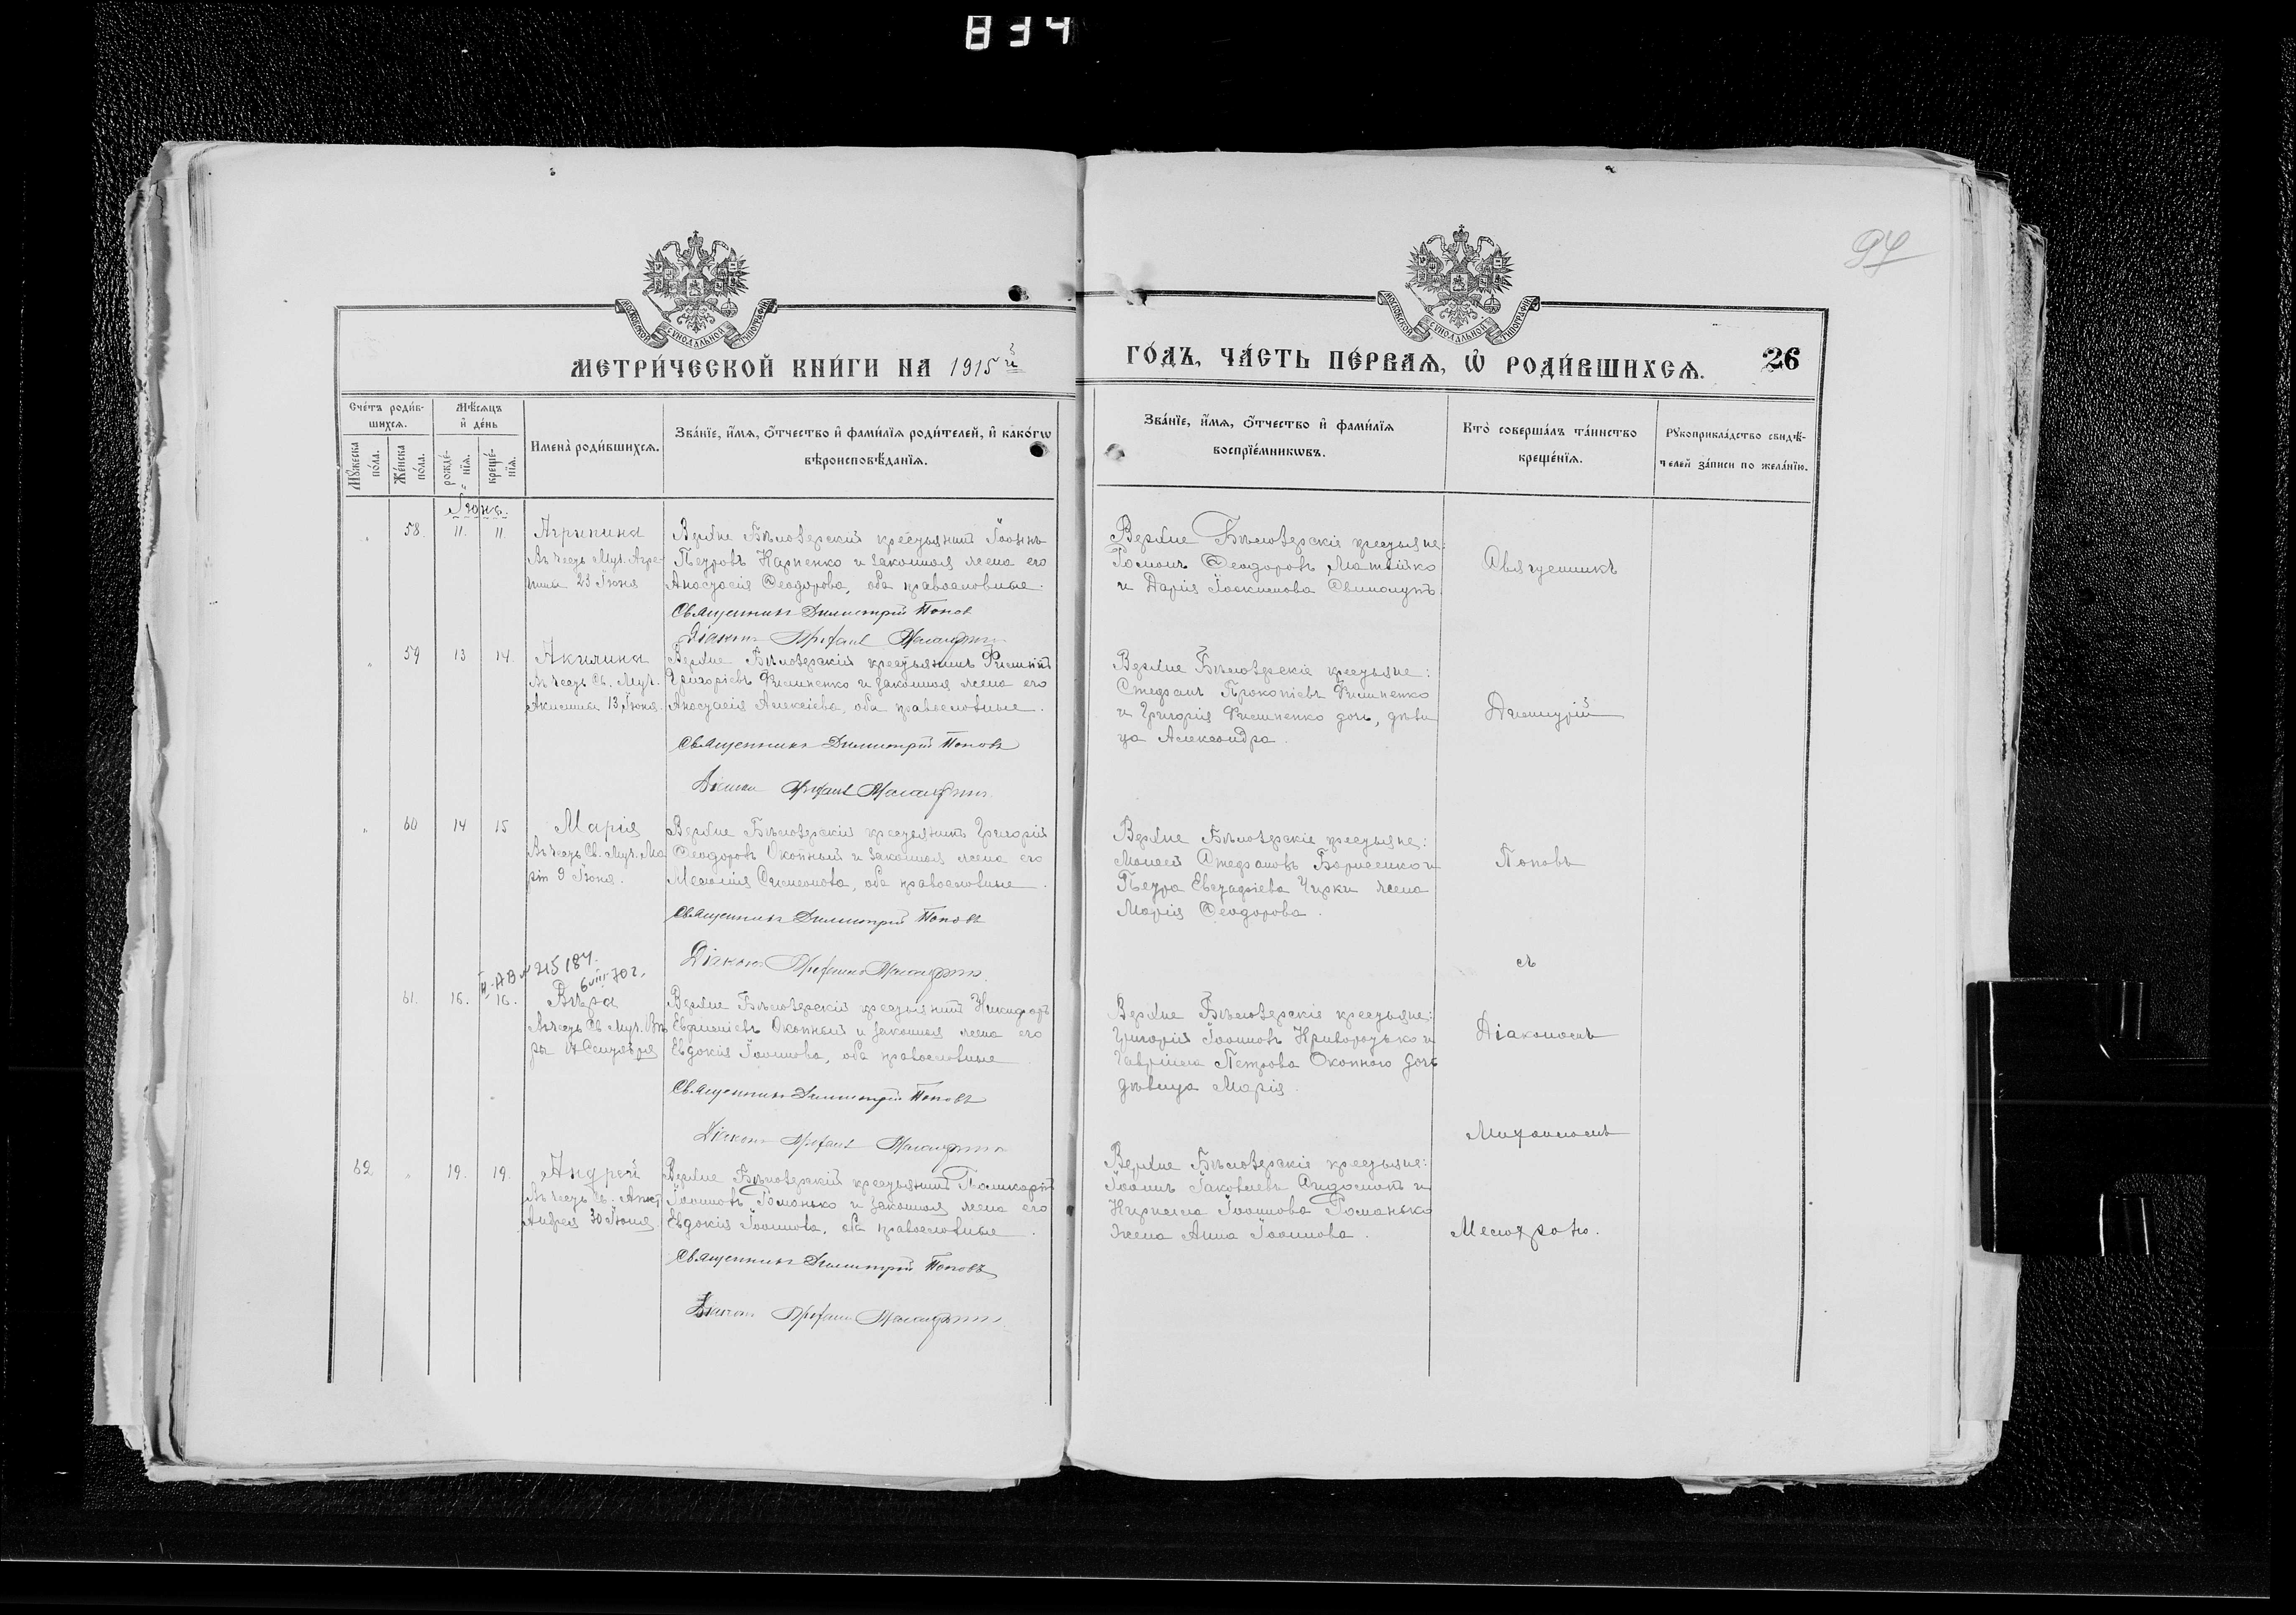 834
97
МОСКОВСКОЙ СѴНОДАЛЬНОЙ ТИПОГРАФІИ
МОСКОВСКОЙ СѴНОДАЛЬНОЙ ТИПОГРАФІИ
МЕТРИ́ЧЕСКОЙ КНИ́ГИ НА 1915й
ГО́ДЪ, ЧА́СТЬ ПЕ́РВАѦ, Ѡ҆ РОДИ́ВШИХСѦ. 26
Сче́тъ роди́в-
шихсѧ.
Мꙋ́жеска
по́ла.
Же́нска
по́ла.
Мѣ́сѧцъ
и҆ де́нь
рожде́-
нїѧ.
креще́-
нїѧ.
Имена̀ роди́вшихсѧ.
Зва́нїе, и҆́мѧ, ѻ҆́тчество и҆ фами́лїѧ роди́телей, и҆ како́гѡ
вѣроисповѣ́данїѧ.
Зва́нїе, и҆́мѧ, ѻ҆́тчество и҆ фами́лїѧ
воспрїе́мникѡвъ.
Кто̀ соверша́лъ та́инство
креще́нїѧ.
Рꙋкоприкла́дство свидѣ́-
телей за́писи по жела́нїю.
Іюнь.
" 58. 11. 11. Агрипина
Въ честь Муч. Агри-
пины 23 Іюня
Верхне Бѣлозерскій крестьянинъ Іоаннъ
Петровъ Карпенко и законная жена его
Анастасія Ѳеодорова, оба православные.
Священникъ Димитрій Попов
Діаконъ
Верхне Бѣлозерскіе крестьяне:
Романъ Ѳеодоровъ Матвійко
и Дарія Іоакимова
Священникъ
" 59 13 14. Акилина
Въ честь Св. Муч.
Акилины 13 Іюня.
Верхне Бѣлозерскій крестьянинъ Филиппъ
Григоріевъ Филипенко и законная жена его
Анастасія Алексіева, оба православные.
Священникъ Димитрій Поповъ
Діаконъ
Верхне Бѣлозерскіе крестьяне:
Стефанъ Прокопіевъ Филипенко
и Григорія Филипенко дочь, дѣви
ца Александра.
Димитрій
" 60 14 15 Марія
Въ честь Св. Муч. Ма
ріи 9 Іюня.
Верхне Бѣлозерскій крестьянинъ Григорій
Ѳеодоровъ Окопный и законная жена его
Меланія Симеонова, оба православные.
Священникъ Димитрій Поповъ
Діаконъ
Верхне Бѣлозерскіе крестьяне:
Моисей Стефановъ Борисенко и
Петра Евстафіева Чирки жена
Марія Ѳеодорова.
Поповъ
съ
II-АВ № 215184.
6 VIII 70 г.
61. 16. 16. Вѣра
Въ честь Св. Муч. Вѣ
ры 17 Сентября
Верхне Бѣлозерскій крестьянинъ Никифоръ
Евфиміевъ Окопный и законная жена его
Евдокія Іоаннова, оба православные.
Священникъ Димитрій Поповъ
Діаконъ
Верхне Бѣлозерскіе крестьяне:
Григорій Іоанновъ Криворотько и
Гавріила Петрова Окопнаго дочь
дѣвица Марія.
Діакономъ
62 " 19. 19. Андрей
Въ честь Св. Апост.
Андрея 30 Іюня.
Верхне Бѣлозерскій крестьянинъ Поликарпъ
Іоанновъ Романько и законная жена его
Евдокія Іоаннова, оба православные.
Священникъ Димитрій Поповъ
Діаконъ
Верхне Бѣлозерскіе крестьяне:
Іоаннъ Іаковлевъ и
Кирилла Іоаннова Романько
жена Анна Іоаннова.